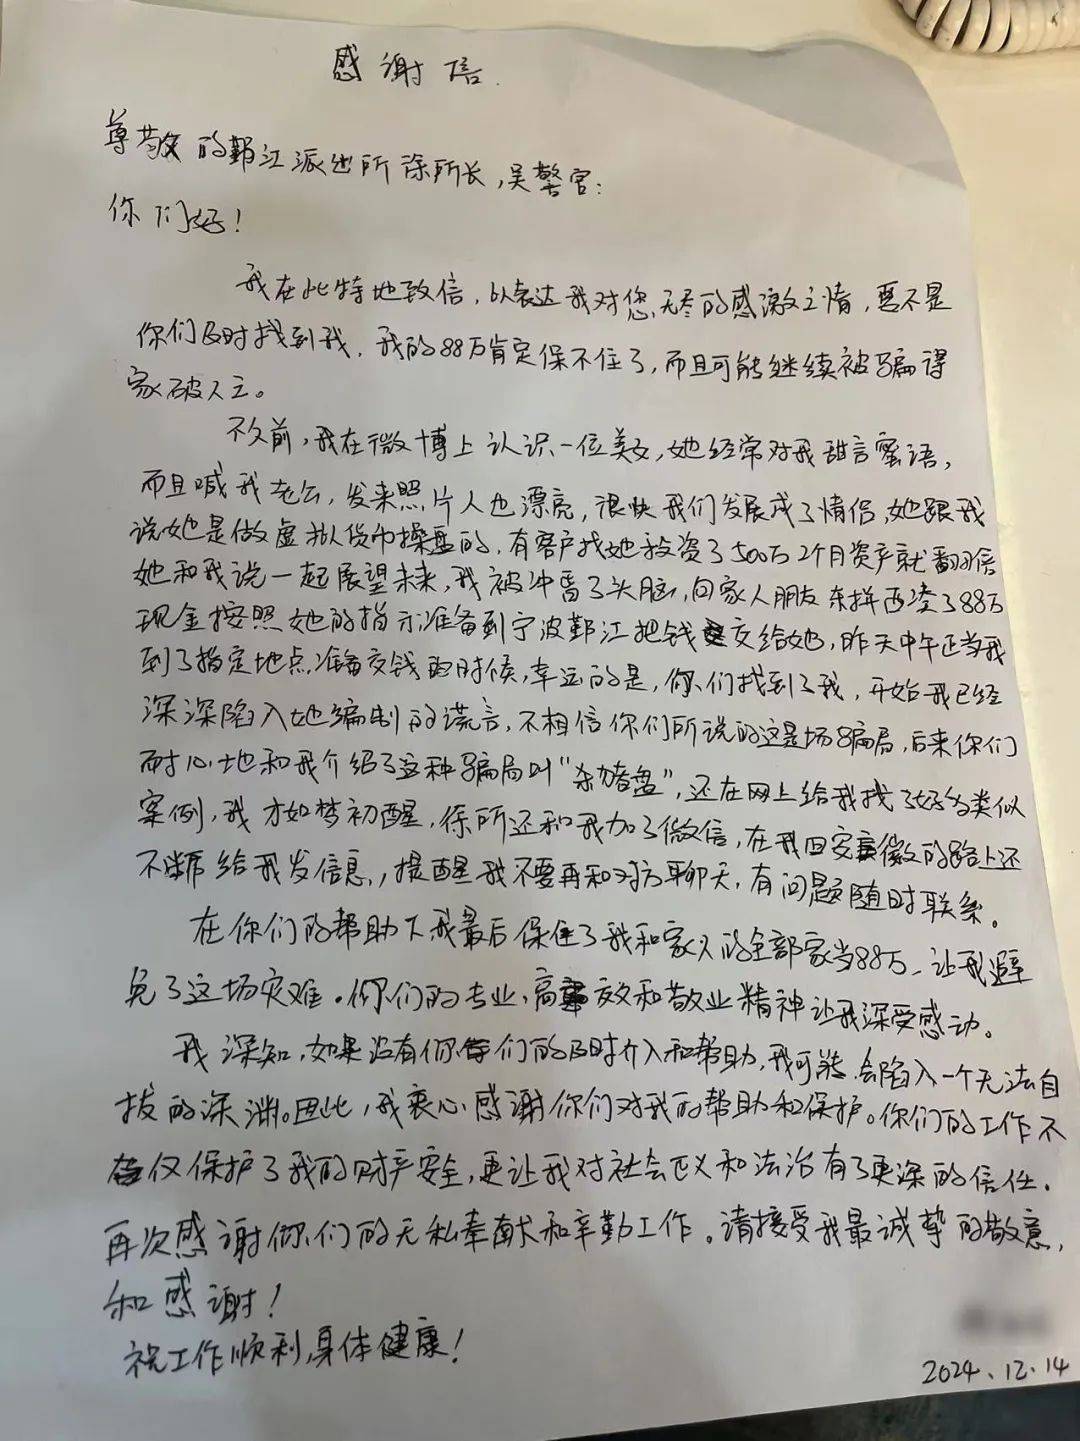 感谢信
尊敬的鄞江派出所徐所长，吴警官：
你们好！
我在此特地致信，以表达我对您无尽的感激之情，要不是
你们及时找到我，我的88万肯定保不住了，而且可能继续被骗得
家破人亡。
不久前，我在微博上认识一位美女，她经常对我甜言蜜语，
而且喊我老公，发来照片人也漂亮，很快我们发展成了情侣，她跟我
说她是做虚拟货币操盘的，有客户找她投资了500万2个月资产就翻倍
她和我说一起展望未来，我被冲昏了头脑，向家人朋友东拼西凑了88万
现金按照她的指示准备到宁波鄞江把钱交给她，昨天中午正当我
到了指定地点准备交钱的时候，幸运的是，你们找到了我，开始我已经
深深陷入她编制的谎言，不相信你们所说的这是场骗局，后来你们
耐心地和我介绍了这种骗局叫“杀猪盘”，还在网上给我找了好多类似
案例，我才如梦初醒，徐所还和我加了微信，在我回安徽的路上还
不断给我发信息，提醒我不要再和对方聊天，有问题随时联系。
在你们的帮助下我最后保住了我和家人的全部家当88万，让我避
免了这场灾难。你们的专业，高效和敬业精神让我深受感动。
我深知，如果没有你们的及时介入和帮助，我可能会陷入一个无法自
拔的深渊。因此，我衷心感谢你们对我的帮助和保护。你们的工作不
仅保护了我的财产安全，更让我对社会正义和法治有了更深的信任。
再次感谢你们的无私奉献和辛勤工作。请接受我最诚挚的敬意，
和感谢！
祝工作顺利，身体健康！
2024.12.14